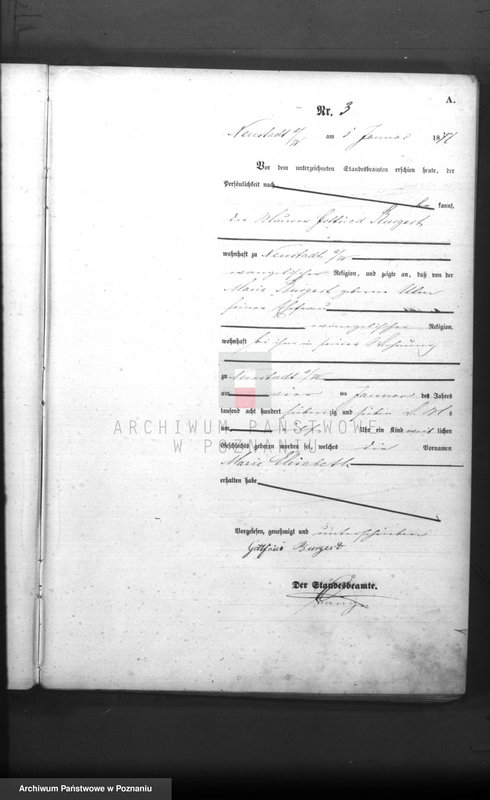 A.
Nr. 3
Neustadt a/W am 5 Januar 1877
Vor dem unterzeichneten Standesbeamten erschien heute, der
Persönlichkeit nach
kannt,
der Maurer Gottfried Burgert
wohnhaft zu Neustadt a/W
evangelischer Religion, und zeigte an, daß von der
Marie Burgert geborne
seiner Ehefrau
evangelischer Religion,
wohnhaft bei ihm in seiner Wohnung
zu Neustadt a/W
am ten Januar des Jahres
tausend acht hundert siebenzig und sieben
um Uhr ein Kind weiblichen
Geschlechts geboren worden sei, welches die Vornamen
Marie Elisabeth
erhalten habe
Vorgelesen, genehmigt und unterschrieben
Gottfried Burgerd
Der Standesbeamte.
ARCHIWUM PAŃSTWOWE
W POZNANIU
Archiwum Państwowe w Poznaniu